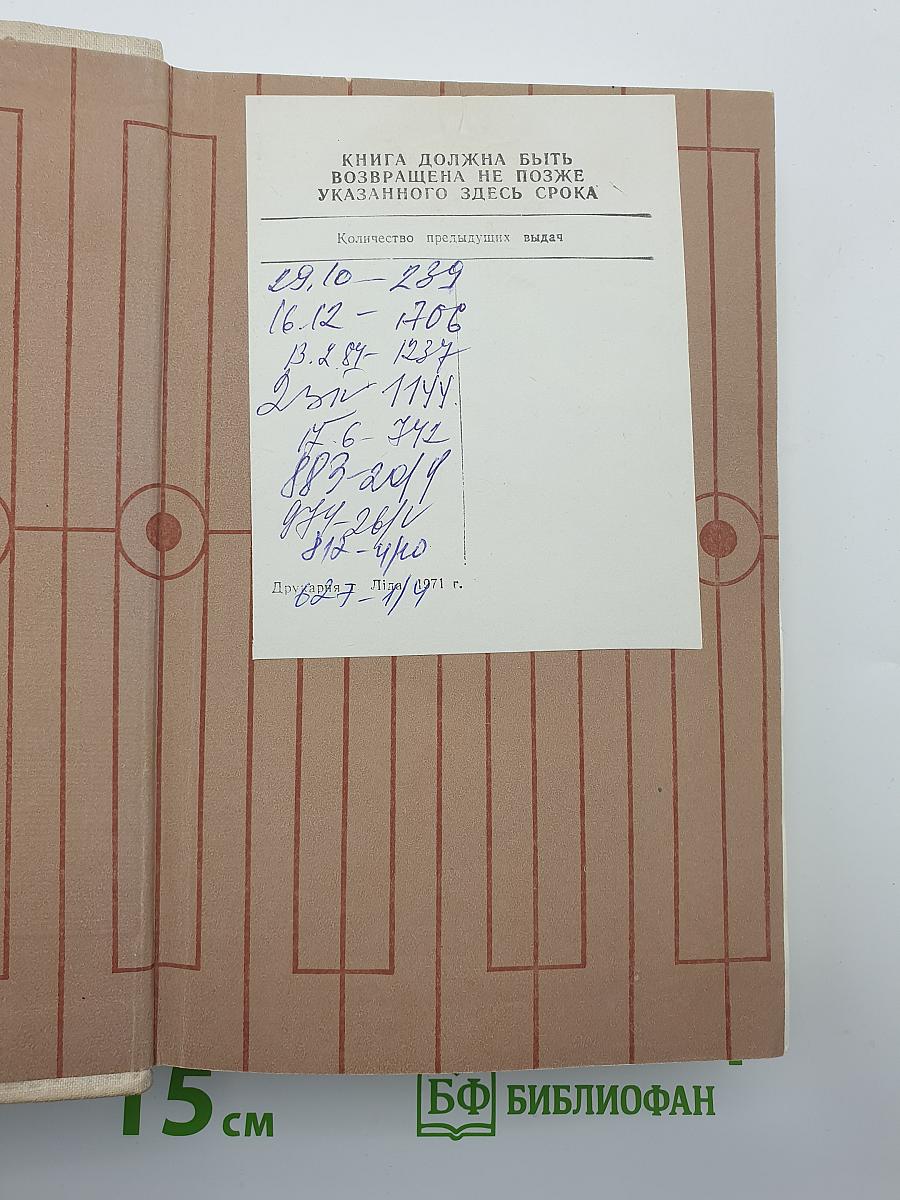 КНИГА ДОЛЖНА БЫТЬ
ВОЗВРАЩЕНА НЕ ПОЗЖЕ
УКАЗАННОГО ЗДЕСЬ СРОКА
Количество предыдущих выдач
29.10 — 239
16.12 — 1706
13.2.84 - 1237
1144
17.6 - 742
883 - 20/4
974 - 26/V
812 - 4/10
Друкарня г. Ліда 1971 г.
627 - 1/4
15 см
БФ БИБЛИОФАН